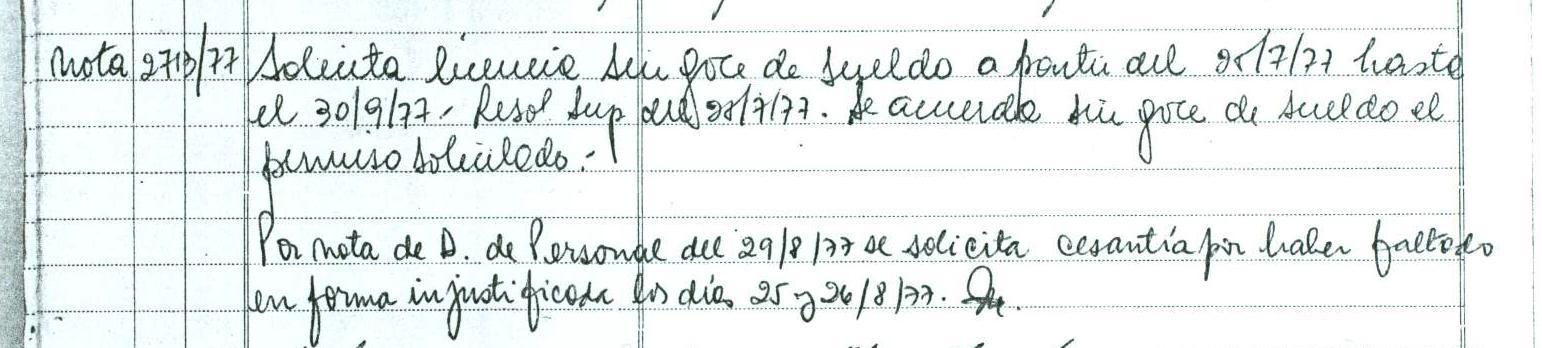 Nota 2713/77 Solicita licencia sin goce de sueldo a partir del 25/7/77 hasta
el 30/9/77 - Resol Sup del 28/7/77. Se acuerda sin goce de sueldo el
permiso solicitado.-
Por nota de D. de Personal del 29/8/77 se solicita cesantía por haber faltado
en forma injustificada los días 25 y 26/8/77.